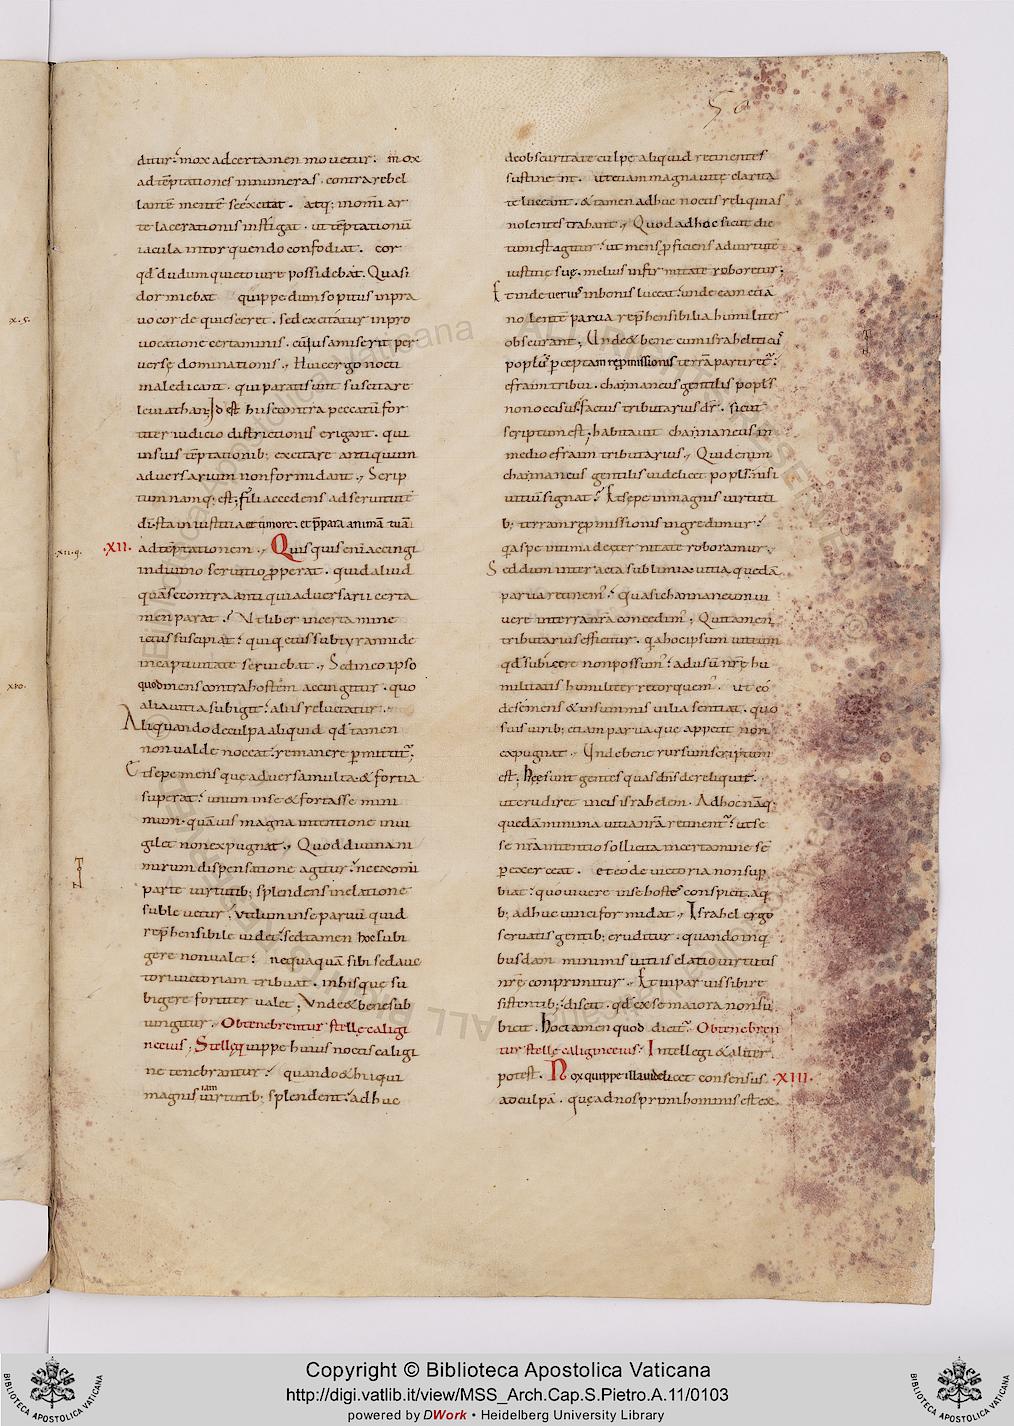 50
ditur. mox ad certamen movetur. mox
ad tẽptationes innumeras. contra rebel
lantẽ mentẽ se excitat. atq; inomĩ ar
te lacerationis instigat. ut tẽptationũ
iacula intorquendo confodiat. cor
qđ dudum quieto iure possidebat. Quasi
dormiebat quippe dum sopitus in pra
vo corde quiesceret. sed excitatur in pro
vocatione certaminis. cũ ius amiserit per
verse dominationis., Huic ergo nocti
maledicant. qui parati sunt suscitare
leviathan; Id est hii se contra peccatũ for
titer iudicio districtionis erigant. qui
in suis tẽptationib; excitare antiquum
adversarum non formidant., Scrip
tum namq; est; fili accedens ad servitutẽ
dĩ. sta in iustitia et timore. et p̃para animã tuã
.XII. ad tẽptationem., Quisquis enĩ accingi
in divino servitio properat. quid aliud
quã se contra antiqui adversarii certa
men parat. Ut liber in certamine
ictus suscipiat. qui quietus sub tyrannide
in captivitate serviebat., Sed in eo ipso
quod mens contra hostem accingitur. quo
alia vitia subigit. aliis reluctatur.
Aliquando de culpa aliquid qđ tamen
non valde noceat. remanere permittitur;
Et sepe mens que adversa multa. & fortia
superat. unum in se & fortasse mini
mum. quãvis magna intentione invi
gilet non expugnat., Quod divina ni
mirum dispensatione agitur. ne ex omĩ
parte virtutib; splendens in elatione
sublevetur. Ut dum in se parvũ quid
rep̃hensibile videt. sed tamen hoc subi
gere non valet. nequaquã sibi sed auc
tori victoriam tribuat. in his que su
bigere fortiter valet; Unde & bene sub
iungitur. Obtenebrentur stelle caligi
ne eius; Stelle quippe huius noctis caligi
ne tenebrantur. quando & hi qui
magnis iam virtutib; splendent. adhuc
de obscuritate culpe aliquid retinentes
sustinent. ut etiam magna vite clarita
te luceant. & tamen adhuc noctis reliquias
nolentes trahant. Quod ad hoc sicut dic
tum est agitur. ut mens proficiens ad virtutẽ
iustitie sue. melius infirmitate roboretur;
Et inde verius in bonis luceat. unde eam etiã
nolente parva rep̃hensibilia humiliter
obscurant; Unde & bene cum israhelitico
populo perceptam repromissionis terrã partiret.
efraim tribui. chananeus gentilis popľs
non occisus. factus tributarius dr̃. sicut
scriptum est; habitavit chananeus in
medio efraim tributarius., Quid enim
chananeus gentilis videlicet popľs. nisi
vitiũ signat. Et sepe in magnis virtuti
b; terram repromissionis ingredimur.
qa spe intima de eternitate roboramur.
Sed dum inter acta sublimia. vitia quedã
parva retinem. quasi chananeum vi
vere in terra nr̃a concedim. Qui tamen
tributarius efficitur. qa hoc ipsum vitium
qđ subicere non possum. ad usũ nr̃e hu
militatis humiliter retorquem. ut eo
de se mens & in summis vilia sentiat. quo
suis virib; etiam parva que appetit non
expugnat. Unde bene rursum scriptum
est; Hee sunt gentes quas dñs dereliquit.
ut erudiret in eis israhelem. Ad hoc nãq;
quedã minima vitia nr̃a retinent. ut se
se nr̃a intentio sollicita in certamine sẽ
p exerceat. et eo de victoria non sup
biat. quo vivere in se hostes conspicit. a q
b; adhuc vinci formidat., Israhel ergo
servatis gentib; eruditur. quando in qi
busdam minimis vitiis elatio virtutis
nr̃e comprimitur., Et in parvis sibi re
sistentib; discit. qđ ex se maiora non su
bicit. Hoc tamen quod dicit. Obtenebren
tur stelle caligine eius. Intellegi & aliter
potest. Nox quippe illa videlicet consensus .XIII.
ad culpã. que ad nos primi hominis est ex
Copyright © Biblioteca Apostolica Vaticana
http://digi.vatlib.it/view/MSS_Arch.Cap.S.Pietro.A.11/0103
powered by DWork • Heidelberg University Library